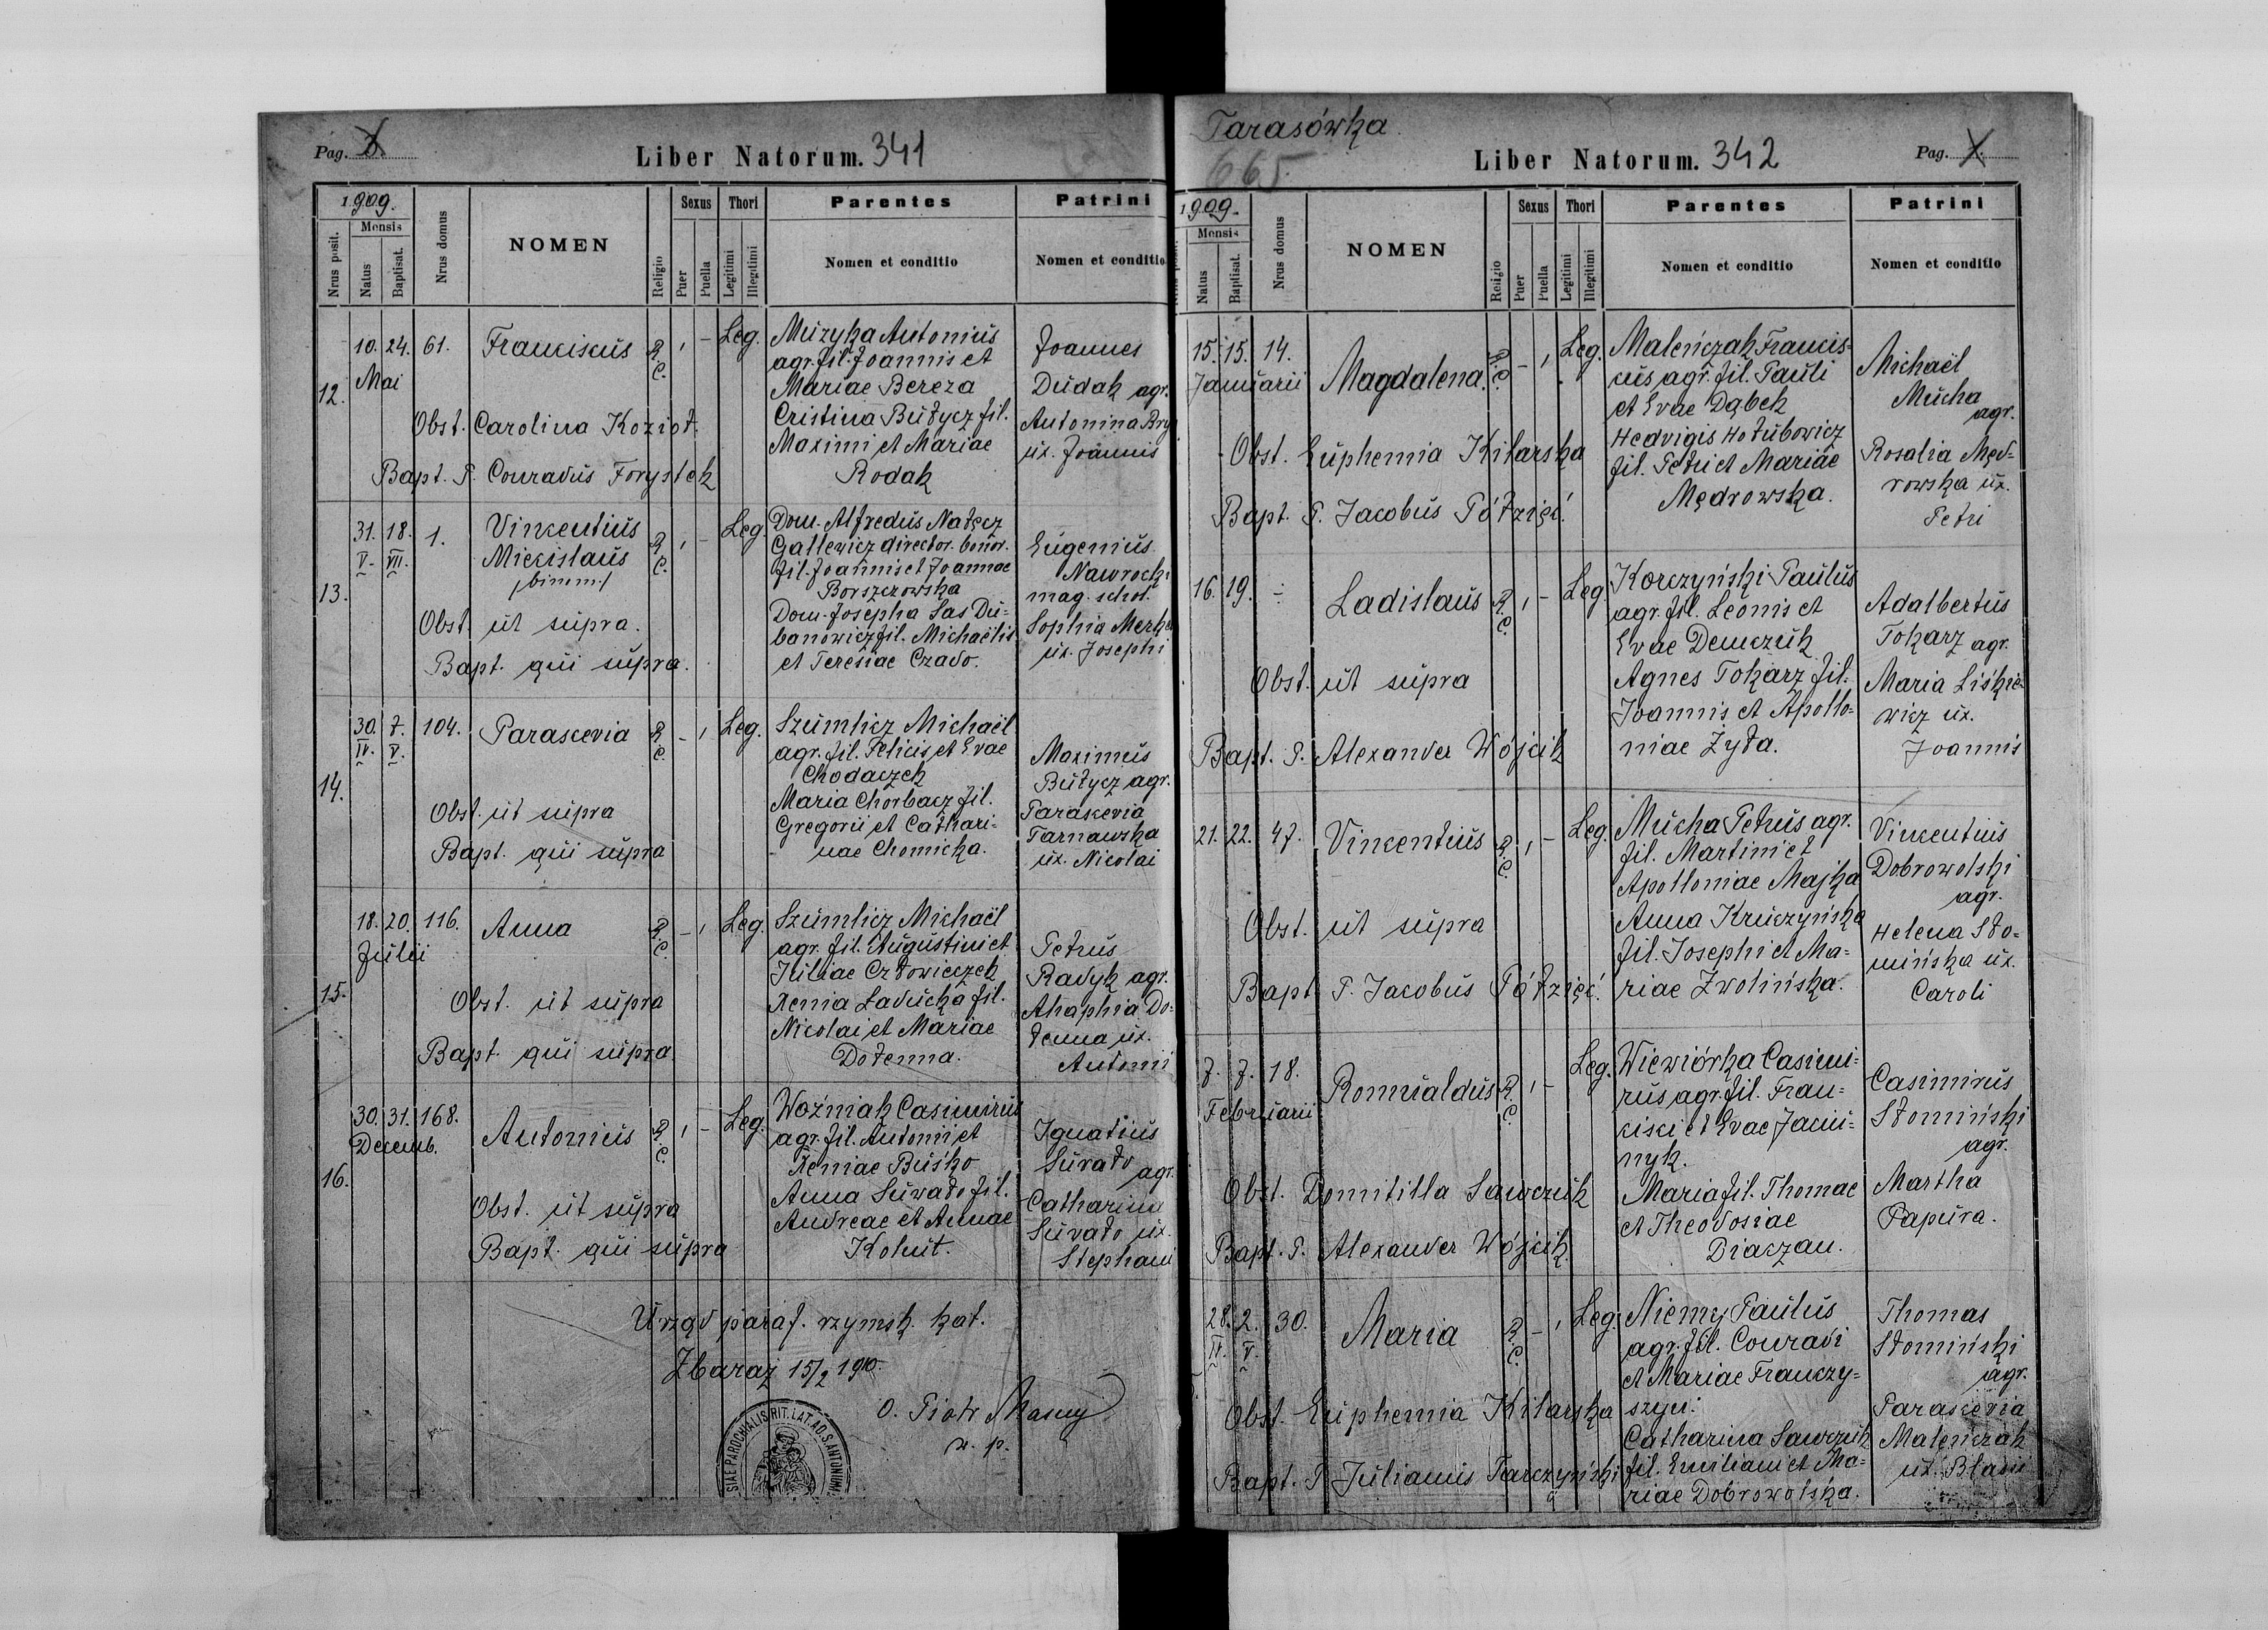 Pag. 3.
Liber Natorum. 341
1909.
Nrus posit.
Mensis
Natus
Baptisat.
Nrus domus
NOMEN
Religio
Sexus
Puer
Puella
Thori
Legitimi
Illegitimi
Parentes
Nomen et conditio
Patrini
Nomen et conditio
12.
10. 24. 61.
Mai
Franciscus
R. C.
Leg.
Muzyka Antonius
agr. fil. Joannis et
Mariae Bereza
Cristina Butycz fil.
Maximi et Mariae
Rodak
Joannes
Dudak agr.
Antonina Bry
ux. Joannis
Obst. Carolina Kozioł.
Bapt. P. Conradus Forystek
13.
31. 18. 1.
V. VII.
Vincentius
Miecislaus
/binom./
R. C.
Leg.
Dom. Alfredus Nałęcz
Gallewicz director. bonor.
fil. Joannis et Joannae
Borszczowska
Dom. Josepha Sas Du=
banowicz fil. Michaëlis
et Teresiae Czado.
Eugenius
Nawrocki
mag. schol.
Sophia Merke
ux. Josephi
Obst. ut supra.
Bapt. qui supra.
14.
30. 7. 104.
IV. V.
Parascevia
R. C.
Leg.
Szumlicz Michaël
agr. fil. Felicis et Evae
Chodaczek
Maria Chorbacz fil.
Gregorii et Cathari=
nae Chomicka.
Maximus
Butycz agr.
Parascevia
Tarnawska
ux. Nicolai
Obst. ut supra
Bapt. qui supra
15.
18. 20. 116.
Julii
Anna
R. C.
Leg.
Szumlicz Michaël
agr. fil. Augustini et
Juliae Człowieczek
Xenia Laducka fil.
Nicolai et Mariae
Dołenna.
Petrus
Radyk agr.
Ahaphia Do=
łenna ux.
Antonii
Obst. ut supra
Bapt. qui supra
16.
30. 31. 168.
Decemb.
Antonius
R. C.
Leg.
Woźniak Casimirus
agr. fil. Antonii et
Xeniae Buśko
Anna Suwało fil.
Andreae et Annae
Kohut.
Ignatius
Suwało agr.
Catharina
Suwało ux.
Stephani
Obst. ut supra
Bapt. qui supra
Urząd paraf. rzymsk. kat.
Zbaraż 15/2 1910.
O. Piotr Masny
SIAE PAROCHIALIS RIT. LAT. AD. S. ANTONIUM
Tarasówka
665.
Liber Natorum. 342
Pag.
1909.
Mensis
Natus
Baptisat.
Nrus domus
NOMEN
Religio
Sexus
Puer
Puella
Thori
Legitimi
Illegitimi
Parentes
Nomen et conditio
Patrini
Nomen et conditio
15. 15. 14.
Januarii
Magdalena.
R. C.
Leg.
Maleńczak Francis=
cus agr. fil. Pauli
et Evae Dąbek
Hedvigis Hołubowicz
fil. Petri et Mariae
Mędrowska.
Michaël
Mucha
agr.
Rosalia Męd=
rowska ux.
Petri
Obst. Euphemia Kilarska
Bapt. P. Jacobus Półzięć.
16. 19. -
Ladislaus
R. C.
Leg.
Korczyński Paulus
agr. fil. Leonis et
Evae Demczuk
Agnes Tokarz fil.
Joannis et Apollo=
niae Żyła.
Adalbertus
Tokarz agr.
Maria Liśkie=
wicz ux.
Joannis
Obst. ut supra
Bapt. P. Alexander Wójcik
21. 22. 47.
Vincentius
R. C.
Leg.
Mucha Petrus agr.
fil. Martini et
Apolloniae Majka
Anna Kruczyńska
fil. Josephi et Ma=
riae Zwolińska.
Vincentius
Dobrowolski
agr.
Helena Sło=
mińska ux.
Caroli
Obst. ut supra
Bapt. P. Jacobus Półzięć.
7. 7. 18.
Februarii
Romualdus
R. C.
Leg.
Wiewiórka Casimi=
rus agr. fil. Fran=
cisci et Evae Jacui=
nyk.
Maria fil. Thomae
et Theodosiae
Diaczan.
Casimirus
Słomiński
agr.
Martha
Papura.
Obst. Domitilla Sawczuk
Bapt. P. Alexander Wójcik.
28. 2. 30.
IV. V.
Maria
R. C.
Leg.
Niemy Paulus
agr. fil. Conradi
et Mariae Franczy=
szyn.
Catharina Sawczuk
fil. Emiliani et Ma=
riae Dobrowolska.
Thomas
Słomiński
agr.
Parascevia
Maleńczak
ux. Blasii
Obst. Euphemia Kilarska
Bapt. P. Julianus Tarczyński